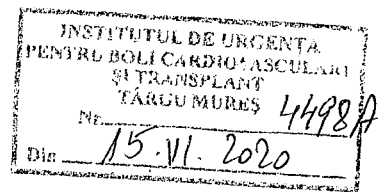 INSTITUTUL DE URGENȚĂ
PENTRU BOLI CARDIOVASCULARE
ȘI TRANSPLANT
TÂRGU MUREȘ
Nr. 4498A
Din 15.VI.2020